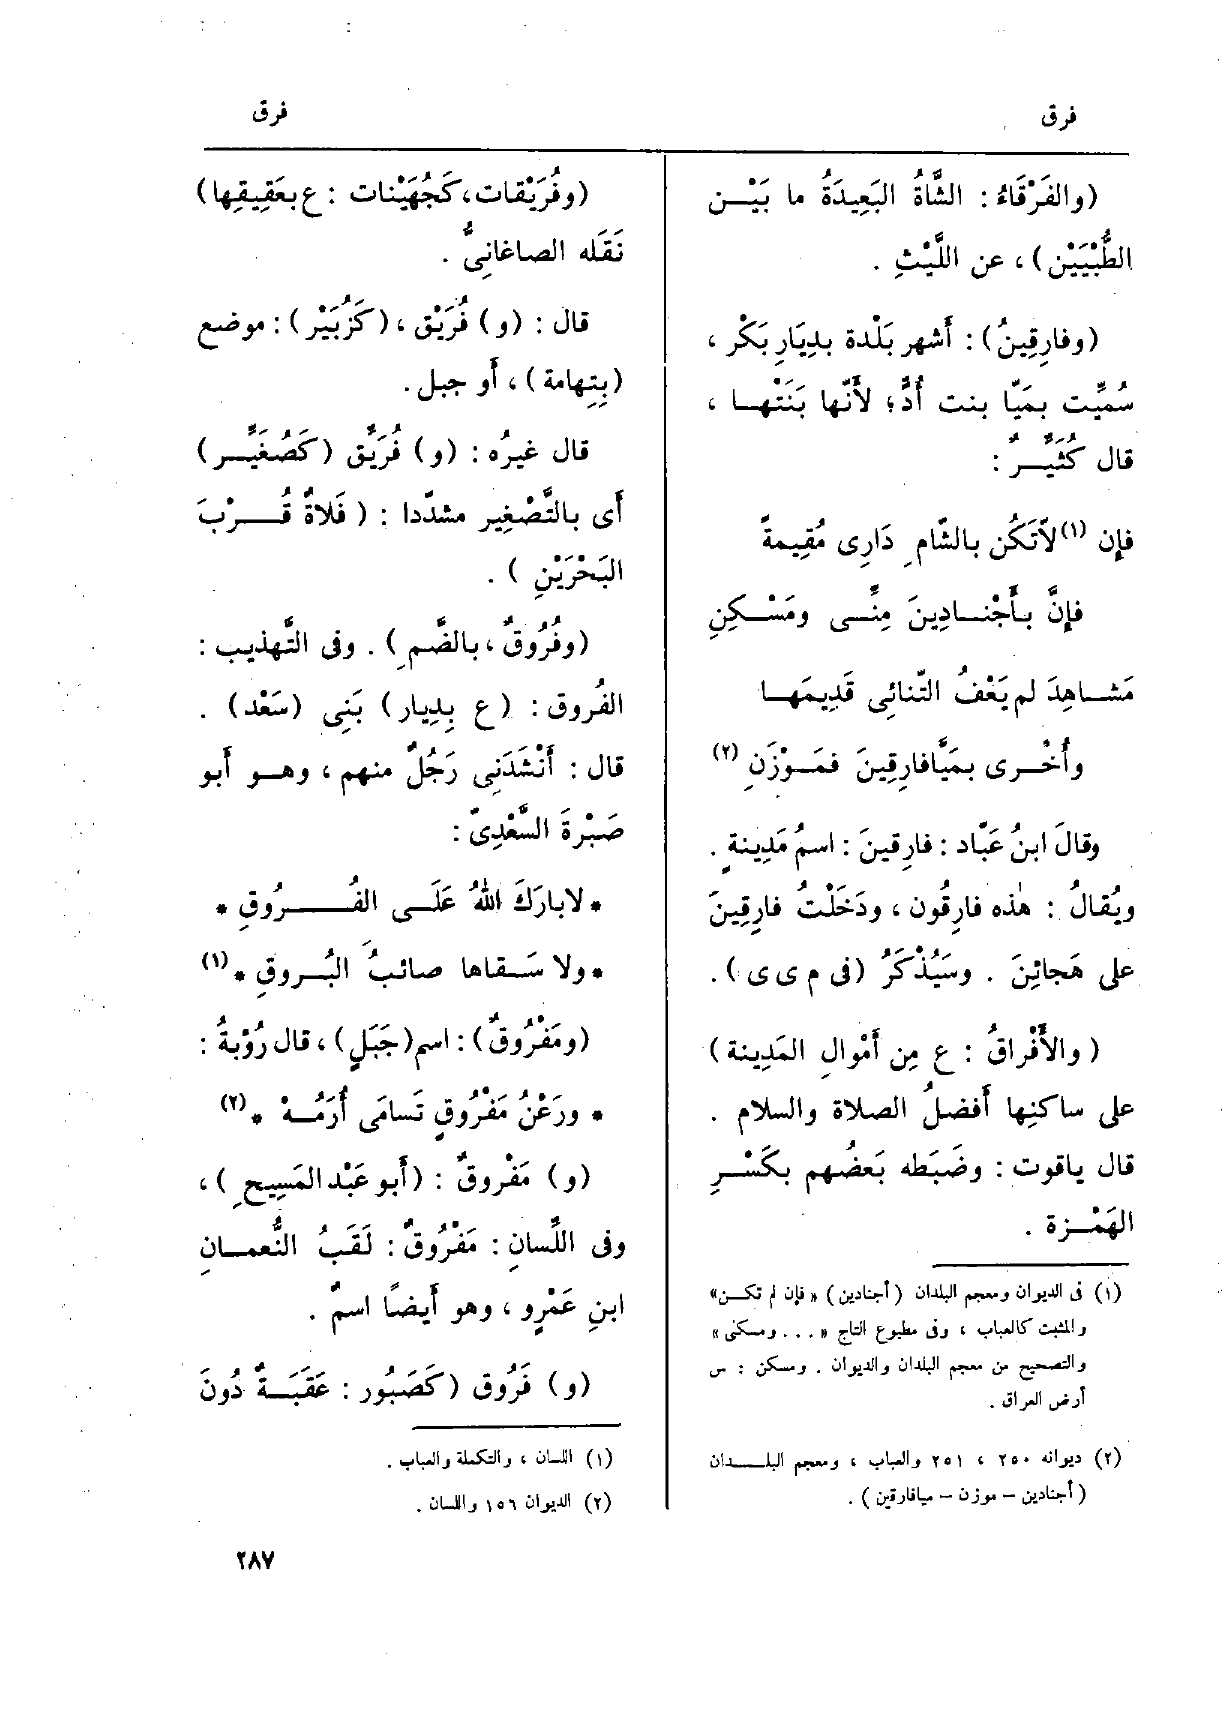 فرق
فرق
(والفَرْقَاءُ : الشَّاةُ البَعِيدَةُ ما بَيْـن
الطُّبْيَيْن) ، عن اللَّيْثِ .
(وفارِقِينُ) : أَشهر بَلْدة بدِيَارِ بَكْر ،
سُمِّيت بمَيّا بنت أُدٍّ؛ لأَنَّها بَنَتْهـا ،
قال كُثَيِّـرٌ :
فإن (١) لاَتَكُن بالشّامِ دَارِى مُقِيمةً
فإِنَّ بأَجْنـادِينَ مِنِّـى ومَسْـكِنِ
مَشـاهِدَ لم يَعْفُ التّنائِى قَدِيمَهـا
وأُخْـرى بمَيَّافارِقِينَ فمَـوْزَنِ (٢)
وقالَ ابنُ عَبّاد : فارِقينَ : اسمُ مَدِينةٍ .
ويُقالُ : هٰذه فارِقُون ، ودَخَلْتُ فارِقِينَ
على هَجائِنَ . وسَيُذْكَرُ (فى م ى ى) .
( والأَفْراقُ : ع مِن أَمْوالِ المَدِينة )
على ساكنِها أَفضلُ الصلاة والسلام .
قال ياقوت : وضَبَطه بَعضُهم بكَسْـرِ
الهَمْـزة .
(١) فى الديوان ومعجم البلدان (أجنادين) « فإن لم تكـن»
والمثبت كالعباب ، وفى مطبوع التاج « . . . ومسكنى »
والتصحيح من معجم البلدان والديوان . ومسكن : س
أرض العراق .
(٢) ديوانه ٢٥٠ ، ٢٥١ والعباب ، ومعجم البلـدان
( أجنادين – موزن – ميافارقين ) .
(وفُرَيْقات، كَجُهَيْنات : ع بعَقِيقِها)
نَقَله الصاغانِىُّ .
قال : (و) فُرَيْق ، (كَزُبَيْر) : موضع
(بِتِهامة) ، أَو جبل .
قال غيرُه : (و) فُرَيِّق (كَصُغَيِّـر)
أَى بالتَّصْغِير مشدّدا : ( فَلاةٌ قُـرْبَ
البَحْرَيْنِ ) .
(وفُرُوقٌ، بالضَّمِ) . وفى التَّهذِيب :
الفُروق : (ع بِدِيار) بَنِى (سَعْد) .
قال : أَنْشَدَنِى رَجُلٌ منهم ، وهـو أَبو
صَبْرةَ السَّعْدِىّ :
* لابارَكَ اللهُ عَلَـى الفُـرُوقِ *
* ولا سَـقاها صائبُ البُـروقِ * (١)
(ومَفْرُوقٌ) : اسم (جَبَلٍ) ، قال رُؤْبةُ :
* ورَعْنُ مَفْروقٍ تَسامَى أُرَمُـهْ * (٢)
(و) مَفْروقٌ : (أَبو عَبْد المَسِيحِ ) ،
وفى اللِّسانِ : مَفْرُوقٌ : لَقَبُ النُّعمـانِ
ابنِ عَمْرٍو ، وهو أَيضًا اسمٌ .
(و) فَرُوق (كَصَبُور : عَقَبَـةٌ دُونَ
(١) اللسان ، والتكملة والعباب .
(٢) الديوان ١٥٦ واللسان .
٢٨٧